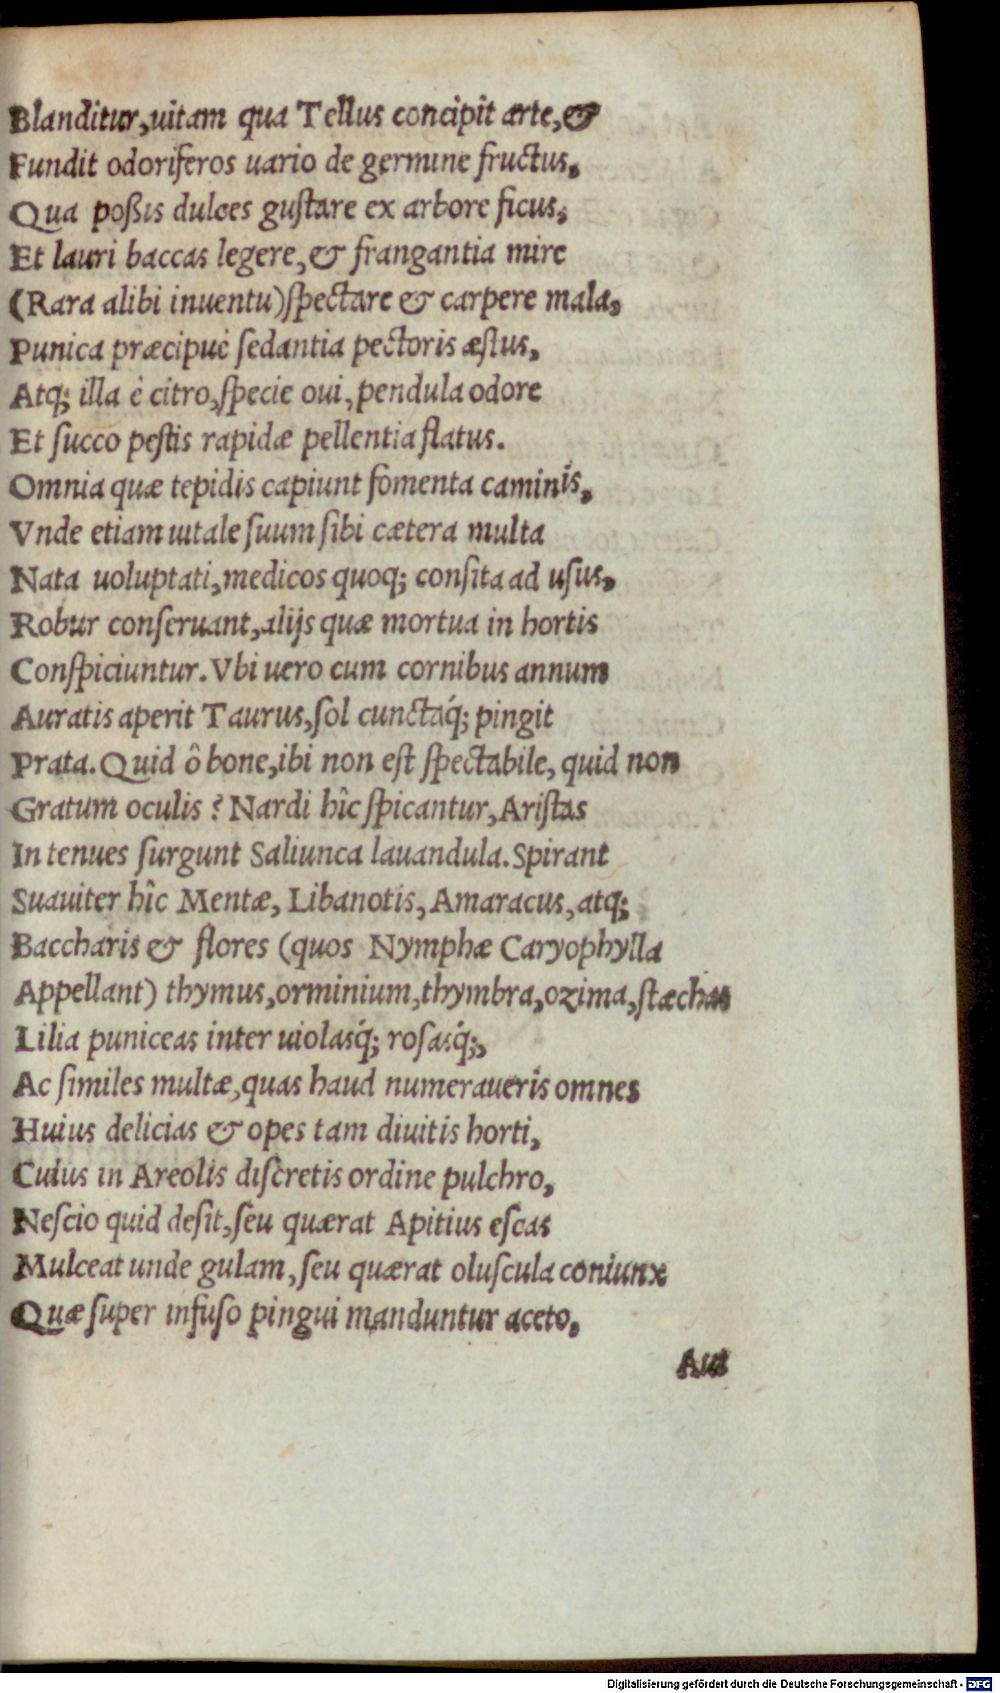 Blanditur, uitam qua Tellus concipit arte, &
Fundit odoriferos uario de germine fructus,
Qua poßis dulces guſtare ex arbore ficus,
Et lauri baccas legere, & frangantia mire
(Rara alibi inuentu) ſpectare & carpere mala,
Punica præcipuè ſedantia pectoris æſtus,
Atq; illa è citro, ſpecie oui, pendula odore
Et ſucco peſtis rapidæ pellentia flatus.
Omnia quæ tepidis capiunt fomenta caminis,
Vnde etiam uitale ſuum ſibi cætera multa
Nata uoluptati, medicos quoq; conſita ad uſus,
Robur conſeruant, alijs quæ mortua in hortis
Conſpiciuntur. Vbi uero cum cornibus annum
Auratis aperit Taurus, ſol cunctaq́; pingit
Prata. Quid ô bone, ibi non eſt ſpectabile, quid non
Gratum oculis? Nardi hîc ſpicantur, Ariſtas
In tenues ſurgunt Saliunca lauandula. Spirant
Suauiter hîc Mentæ, Libanotis, Amaracus, atq;
Baccharis & flores (quos Nymphæ Caryophylla
Appellant) thymus, orminium, thymbra, ozima, ſtæchas
Lilia puniceas inter uiolasq́; roſasq́;,
Ac ſimiles multæ, quas haud numeraueris omnes
Huius delicias & opes tam diuitis horti,
Cuius in Areolis diſcretis ordine pulchro,
Neſcio quid deſit, ſeu quærat Apitius eſcas
Mulceat unde gulam, ſeu quærat oluſcula coniunx
Quæ ſuper infuſo pingui manduntur aceto,
Aut
Digitalisierung gefördert durch die Deutsche Forschungsgemeinschaft - DFG